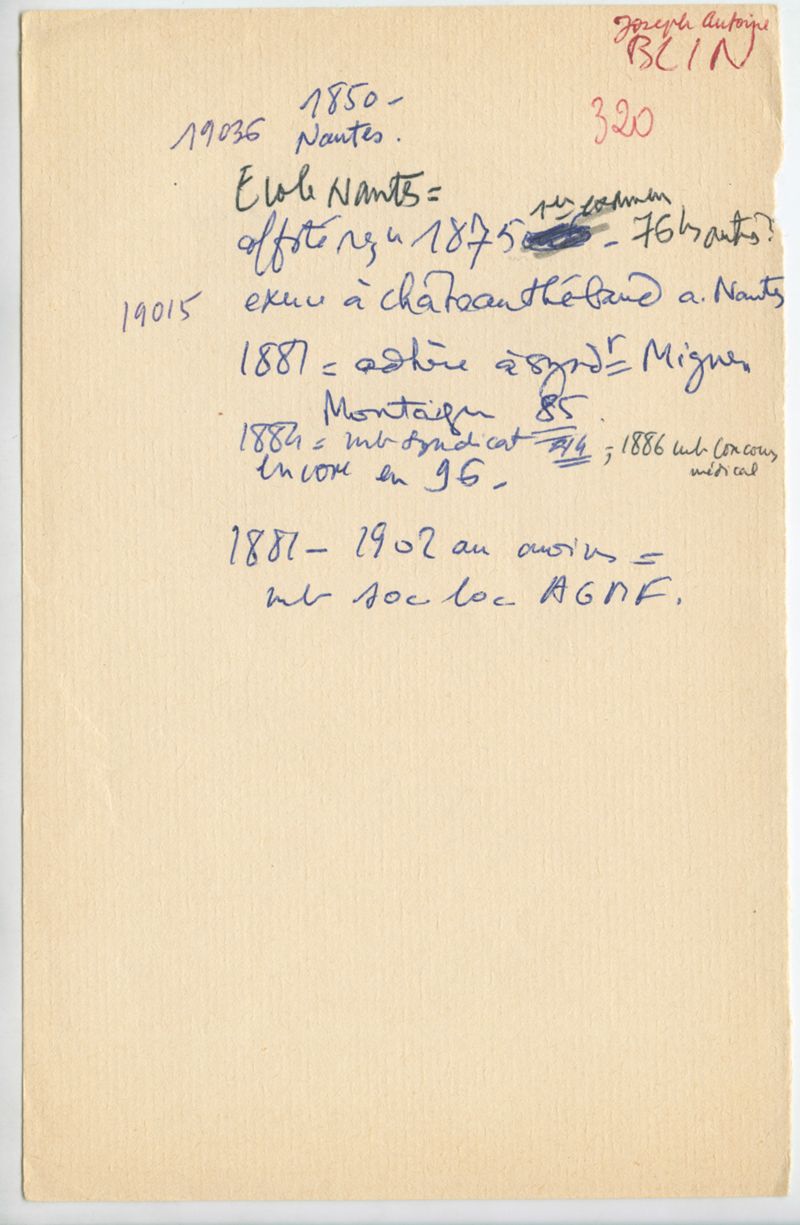 Joseph Antoine
BLIN
320
1850-
19036 Nantes.
Ecole Nantes =
1er examen
offste reçu 1875 - 76 les autres?
19015 exerce à châteauthébaud a. Nantes
1881 = adhère à synd r = Mignen
Montaigu 85.
1884 = mb syndicat 44 ; 1886 mb Concours
médical
encore en 96 -
1881 - 1902 au moins =
mb soc loc AGMF.